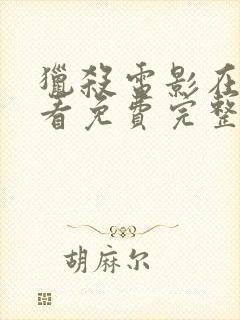 獵殺電影在
看免費完整
胡麻尔